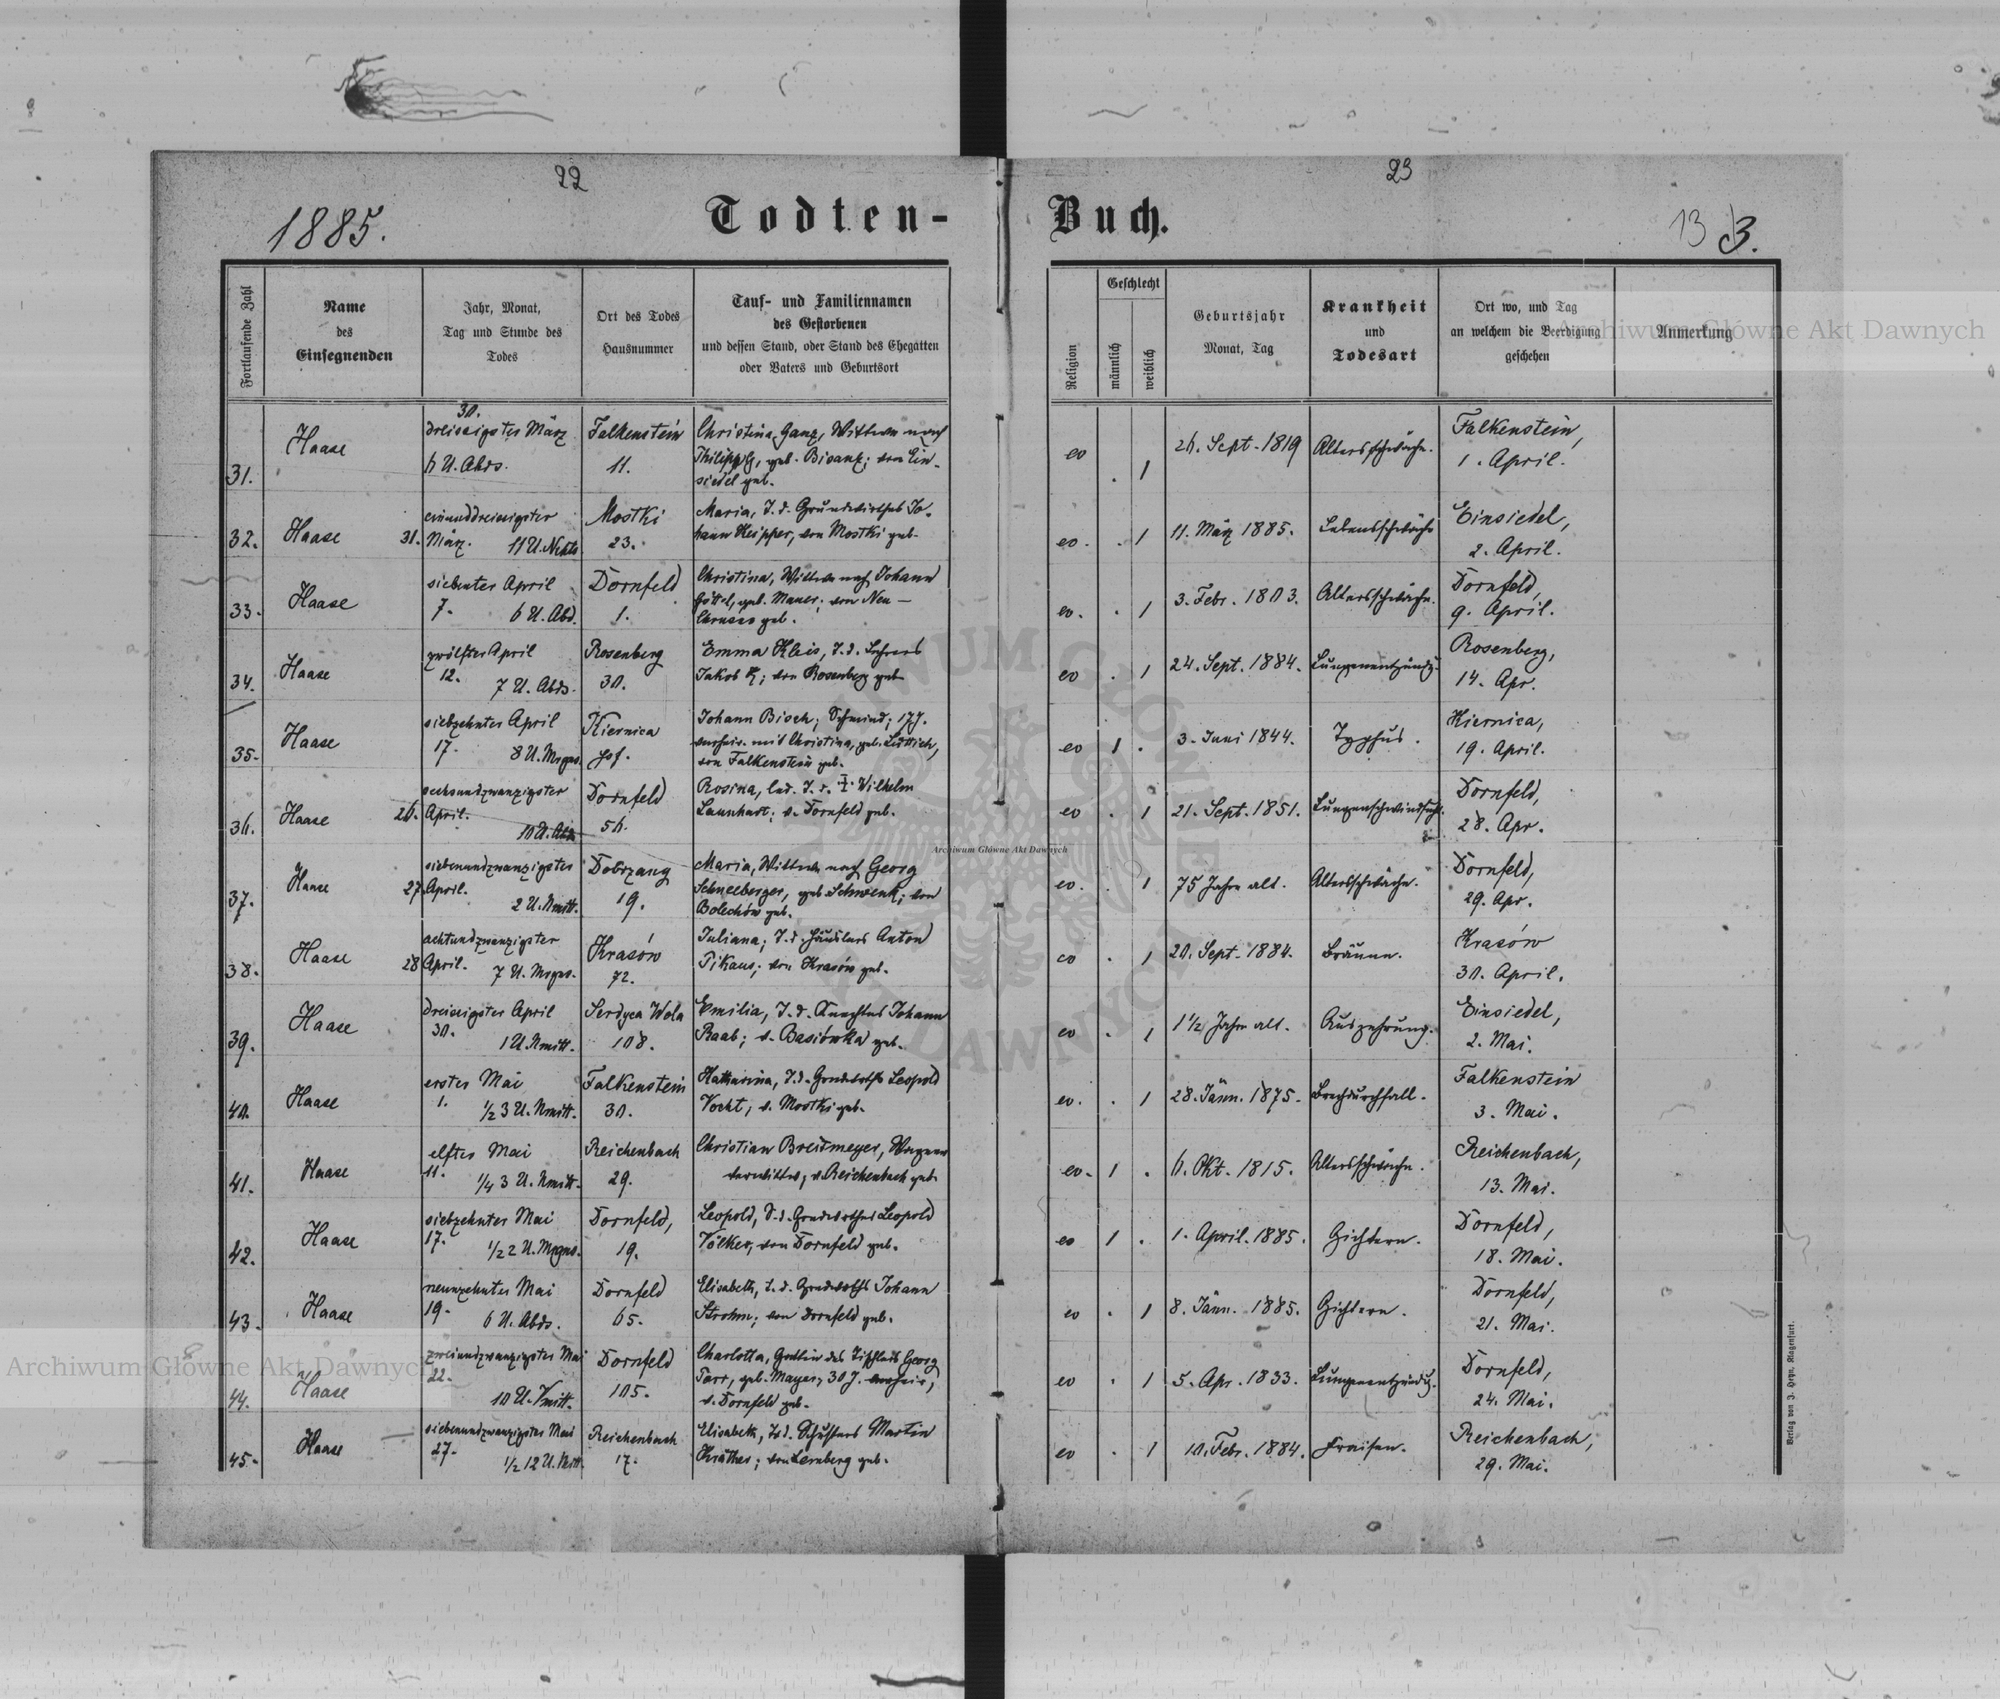 22
23
1885.
Todten-Buch.
13 3.
Fortlaufende Zahl
Name
des
Einsegnenden
Jahr, Monat,
Tag und Stunde des
Todes
Ort des Todes
Hausnummer
Tauf- und Familiennamen
des Gestorbenen
und dessen Stand, oder Stand des Ehegatten
oder Vaters und Geburtsort
Religion
Geschlecht
männlich
weiblich
Geburtsjahr
Monat, Tag
Krankheit
und
Todesart
Ort wo, und Tag
an welchem die Beerdigung
geschehen
Anmerkung
31.
Haase
30.
dreissigster März
6 U. Abds.
Falkenstein
11.
Christina Ganz, Wittwe nach
Philipp G, geb. Bisanz; von Ein-
siedel geb.
ev
. 1
26. Sept. 1819
Altersschwäche.
Falkenstein,
1. April.
32.
Haase
einunddreissigster
31. März. 11 U. Nchts
Mostki
23.
Maria, T. d. Grundwirthes Jo-
hann Keipper, von Mostki geb.
ev.
. 1
11. März 1885.
Lebensschwäche
Einsiedel,
2. April.
33.
Haase
siebenter April
7. 6 U. Abd.
Dornfeld
1.
Christina, Wittwe nach Johann
Göttel, geb. Mauer; von Neu-
Chrusno geb.
ev.
. 1
3. Febr. 1803.
Altersschwäche.
Dornfeld,
9. April.
34.
Haase
zwölfter April
12. 7 U. Abds.
Rosenberg
30.
Emma Kleis, T. d. Lehrers
Jakob K; von Rosenberg geb.
ev
. 1
24. Sept. 1884.
Lungenentzündg.
Rosenberg,
14. Apr.
35.
Haase
siebzehnter April
17. 8 U. Mrgns.
Kiernica
Hof.
Johann Bisch; Schmied; 17 J.
verheir. mit Christina, geb. Lüttich,
von Falkenstein geb.
ev
1 .
3. Juni 1844.
Typhus.
Kiernica,
19. April.
36.
Haase
sechsundzwanzigster
26. April.
10 U. Abds
Dornfeld
56.
Rosina, led. T. d. Wilhelm
Launhart; v. Dornfeld geb.
ev
. 1
21. Sept. 1851.
Lungenschwindsucht.
Dornfeld,
28. Apr.
37.
Haase
siebenundzwanzigster
27 April.
2 U. Nmitt.
Dobrzany
19.
Maria, Wittwe nach Georg
Schneeberger, geb. Schwenk; von
Bolechów geb.
ev.
. 1
75 Jahre alt.
Altersschwäche.
Dornfeld,
29. Apr.
38.
Haase
achtundzwanzigster
28 April. 7 U. Mrgns.
Krasów
72.
Juliana; T. d. Häuslers Anton
Pikaus; von Krasów geb.
ev
. 1
20. Sept. 1884.
Bräune.
Krasów
30. April.
39.
Haase
dreissigster April
30. 1 U. Nmitt.
Serdyca Wola
108.
Emilia, T. d. Knechtes Johann
Raab; v. Basiówka geb.
ev
. 1
1 1/2 Jahre alt.
Auszehrung.
Einsiedel,
2. Mai.
40.
Haase
erster Mai
1. 1/2 3 U. Nmitt.
Falkenstein
30.
Katharina, T. d. Grndwrths Leopold
Vocht; v. Mostki geb.
ev.
. 1
28. Jänn. 1875.
Brechdurchfall.
Falkenstein
3. Mai.
41.
Haase
elfter Mai
11. 1/4 3 U. Nmitt.
Reichenbach
29.
Christian Breitmeyer, Wagner
verwittwet, v. Reichenbach geb.
ev.
1 .
6. Okt. 1815.
Altersschwäche.
Reichenbach,
13. Mai.
42.
Haase
siebzehnter Mai
17. 1/2 2 U. Mrgns.
Dornfeld,
19.
Leopold, S. d. Grndwrthes Leopold
Völker, von Dornfeld geb.
ev
1 .
1. April. 1885.
Gichtern.
Dornfeld,
18. Mai.
43.
Haase
neunzehnter Mai
19. 6 U. Abds.
Dornfeld
65.
Elisabeth, T. d. Grndwrths Johann
Strohm; von Dornfeld geb.
ev
. 1
8. Jänn. 1885.
Gichtern.
Dornfeld,
21. Mai.
44.
Haase
zweiundzwanzigster Mai
22. 10 U. Vmitt.
Dornfeld
105.
Charlotta, Gattin des Tischlers Georg
Parr, geb. Mayer, 30 J. verheir,
v. Dornfeld geb.
ev
. 1
5. Apr. 1833.
Lungenentzündg.
Dornfeld,
24. Mai.
45.
Haase
siebenundzwanzigster Mai
27. 1/2 12 U. Nchts.
Reichenbach
17.
Elisabeth, T. d. Schusters Martin
Kräther; von Lemberg geb.
ev
. 1
10. Febr. 1884.
Fraisen.
Reichenbach,
29. Mai.
Verlag von J. Heyn, Klagenfurt.
Archiwum Główne Akt Dawnych
Archiwum Główne Akt Dawnych
Archiwum Główne Akt Dawnych
ARCHIWUM GŁÓWNE AKT DAWNYCH